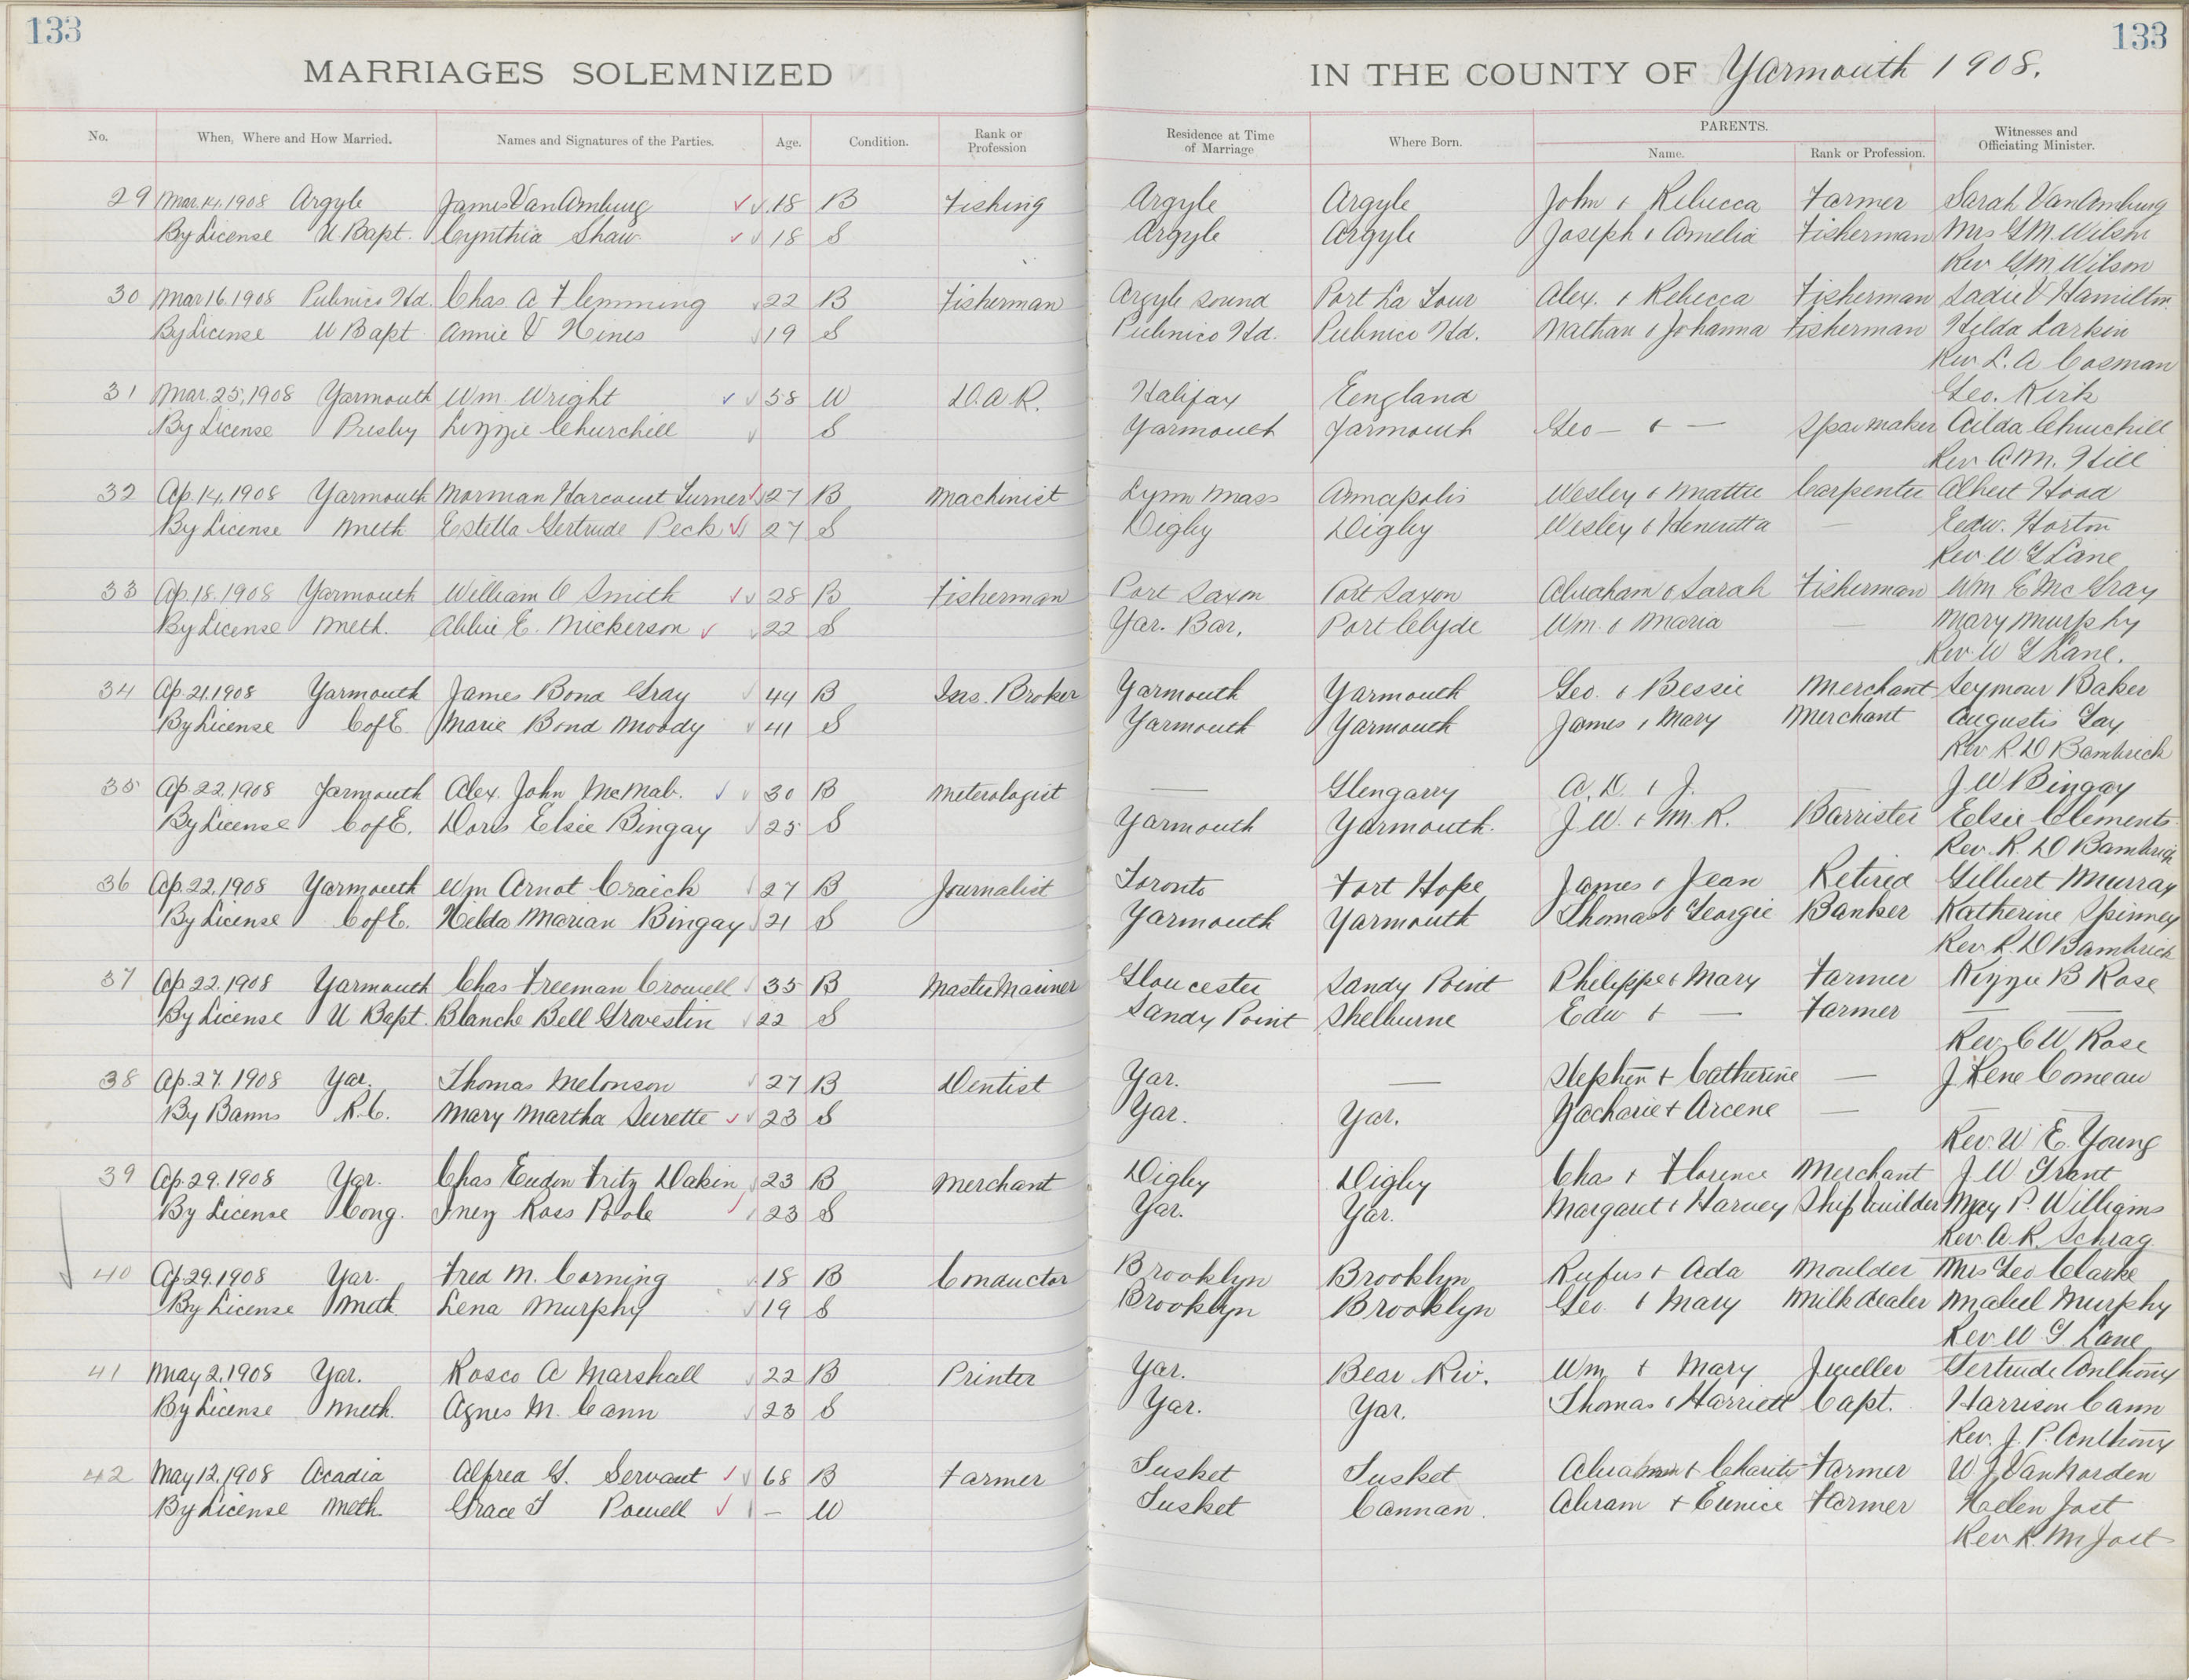 133 133
MARRIAGES SOLEMNIZED IN THE COUNTY OF Yarmouth 1908.
No. When, Where and How Married. Names and Signatures of the Parties. Age. Condition. Rank or Profession Residence at Time of Marriage Where Born. PARENTS. Name. Rank or Profession. Witnesses and Officiating Minister.
29 Mar. 14, 1908 Argyle James VanAmburg 18 B Fishing Argyle Argyle John + Rebecca Farmer Sarah VanAmburg
By License U Bapt. Cynthia Shaw 18 S Argyle Argyle Joseph + Amelia Fisherman Mrs G.M. Wilson
Rev G.M. Wilson
30 Mar 16, 1908 Pubnico Hd. Chas A Flemming 22 B Fisherman Argyle Sound Port La Tour Alex. + Rebecca Fisherman Sadie V Hamilton
By License U Bapt Annie V Hines 19 S Pubnico Hd. Pubnico Hd. Nathan + Johanna Fisherman Hilda Larkin
Rev L. A Cosman
31 Mar. 25, 1908 Yarmouth Wm. Wright 38 W D.A.R. Halifax England Geo. Kirk
By License Presby Lizzie Churchill S Yarmouth Yarmouth Geo — + — Spar maker Churchill
Rev A M. Hill
32 Ap. 14, 1908 Yarmouth Norman Harcourt Turner 27 B Machinist Lynn Mass Annapolis Wesley + Mattie Carpenter Albert Hood
By License Meth Estella Gertrude Peck 27 S Digby Digby Wesley + Henrietta — Edw. Horton
Rev W G Lane
33 Ap. 18. 1908 Yarmouth William O Smith 28 B Fisherman Port Saxon Port Saxon Abraham + Sarah Fisherman Wm E McGray
By License Meth. Abbie E. Nickerson 22 S Yar. Bar. Port Clyde Wm. + Maria — Mary Murphy
Rev W G Lane.
34 Ap. 21. 1908 Yarmouth James Bond Gray 44 B Ins. Broker Yarmouth Yarmouth Geo. + Bessie Merchant Seymour Baker
By License C of E. Marie Bond Moody 41 S Yarmouth Yarmouth James + Mary Merchant Augustis
Rev R D Bambrick
35 Ap. 22, 1908 Yarmouth Alex. John McNab. 30 B Meterologist — Glengarry A. D. + J. — J W Bingay
By License C of E. Doris Elsie Bingay 25 S Yarmouth Yarmouth. J. W. + M. R. Barrister Elsie Clements
Rev. R. D Bambrick
36 Ap. 22, 1908 Yarmouth Wm Arnot Craick 27 B Journalist Toronto Port Hope James + Jean Retired Gilbert Murray
By License C of E. Hilda Marian Bingay 21 S Yarmouth Yarmouth Thomas + Georgie Banker Katherine Spinney
Rev R. D Bambrick
37 Ap. 22. 1908 Yarmouth Chas Freeman Crowell 35 B Master Mariner Gloucester Sandy Point Philippe + Mary Farmer Kizzie B Rose
By License U Bapt. Blanche Bell Grovestin 22 S Sandy Point Shelburne Edw + — Farmer — —
Rev. C W Rose
38 Ap. 27. 1908 Yar. Thomas Melonson 27 B Dentist Yar. — Stephen + Catherine — J Rene Comeau
By Banns R. C. Mary Martha Surette 23 S Yar. Yar. Zacharie + Arcene — — —
Rev. W E. Young
39 Ap. 29. 1908 Yar. Chas Fritz Dakin 23 B Merchant Digby Digby Chas + Florence Merchant J. W Grant
By License Cong. Inez Ross Poole 23 S Yar. Yar. Margaret + Harvey Ship builder May P. Williams
Rev. A. R. Schrag
40 Ap. 29. 1908 Yar. Fred M. Corning 18 B Conductor Brooklyn Brooklyn Rufus + Ada Moulder Mrs Geo Clarke
By License Meth Lena Murphy 19 S Brooklyn Brooklyn Geo + Mary Milk dealer Mabel Murphy
Rev W G Lane
41 May 2, 1908 Yar. Rosco A Marshall 22 B Printer Yar. Bear Riv. Wm + Mary Jweller Gertrude Anthony
By License Meth. Agnes M. Cann 23 S Yar. Yar. Thomas + Harriett Capt. Harrison Cann
Rev. J. P. Anthony
42 May 12, 1908 Acadia Alfred G. Servant 68 B Farmer Tusket Tusket + Charity Farmer W J VanNorden
By License Meth. Grace T Powell — W Tusket Cannan. Abram + Eunice Farmer Helen Jost
Rev R. M Jost